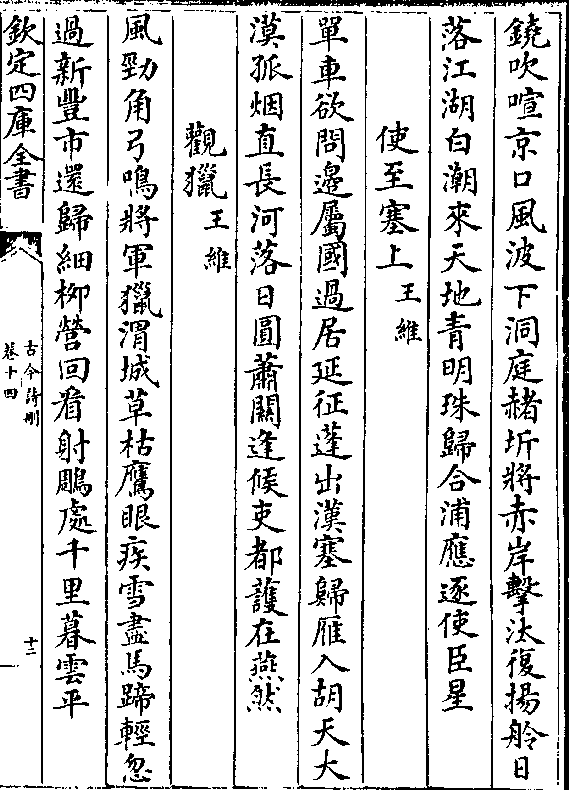 鐃吹喧京口風波下洞庭赭圻將赤岸擊汰復揚舲日
落江湖白潮來天地青明珠歸合浦應逐使臣星
使至塞上王維
單車欲問邊屬國過居延征蓬出漢塞歸雁入胡天大
漠孤烟直長河落日圓蕭關逢候吏都護在燕然
觀獵王維
風勁角弓鳴將軍獵渭城草枯鷹眼疾雪盡馬蹄輕忽
過新豐市還歸細柳營回看射鵰處千里暮雲平
欽定四庫全書
古今詩刪
卷十四
十二